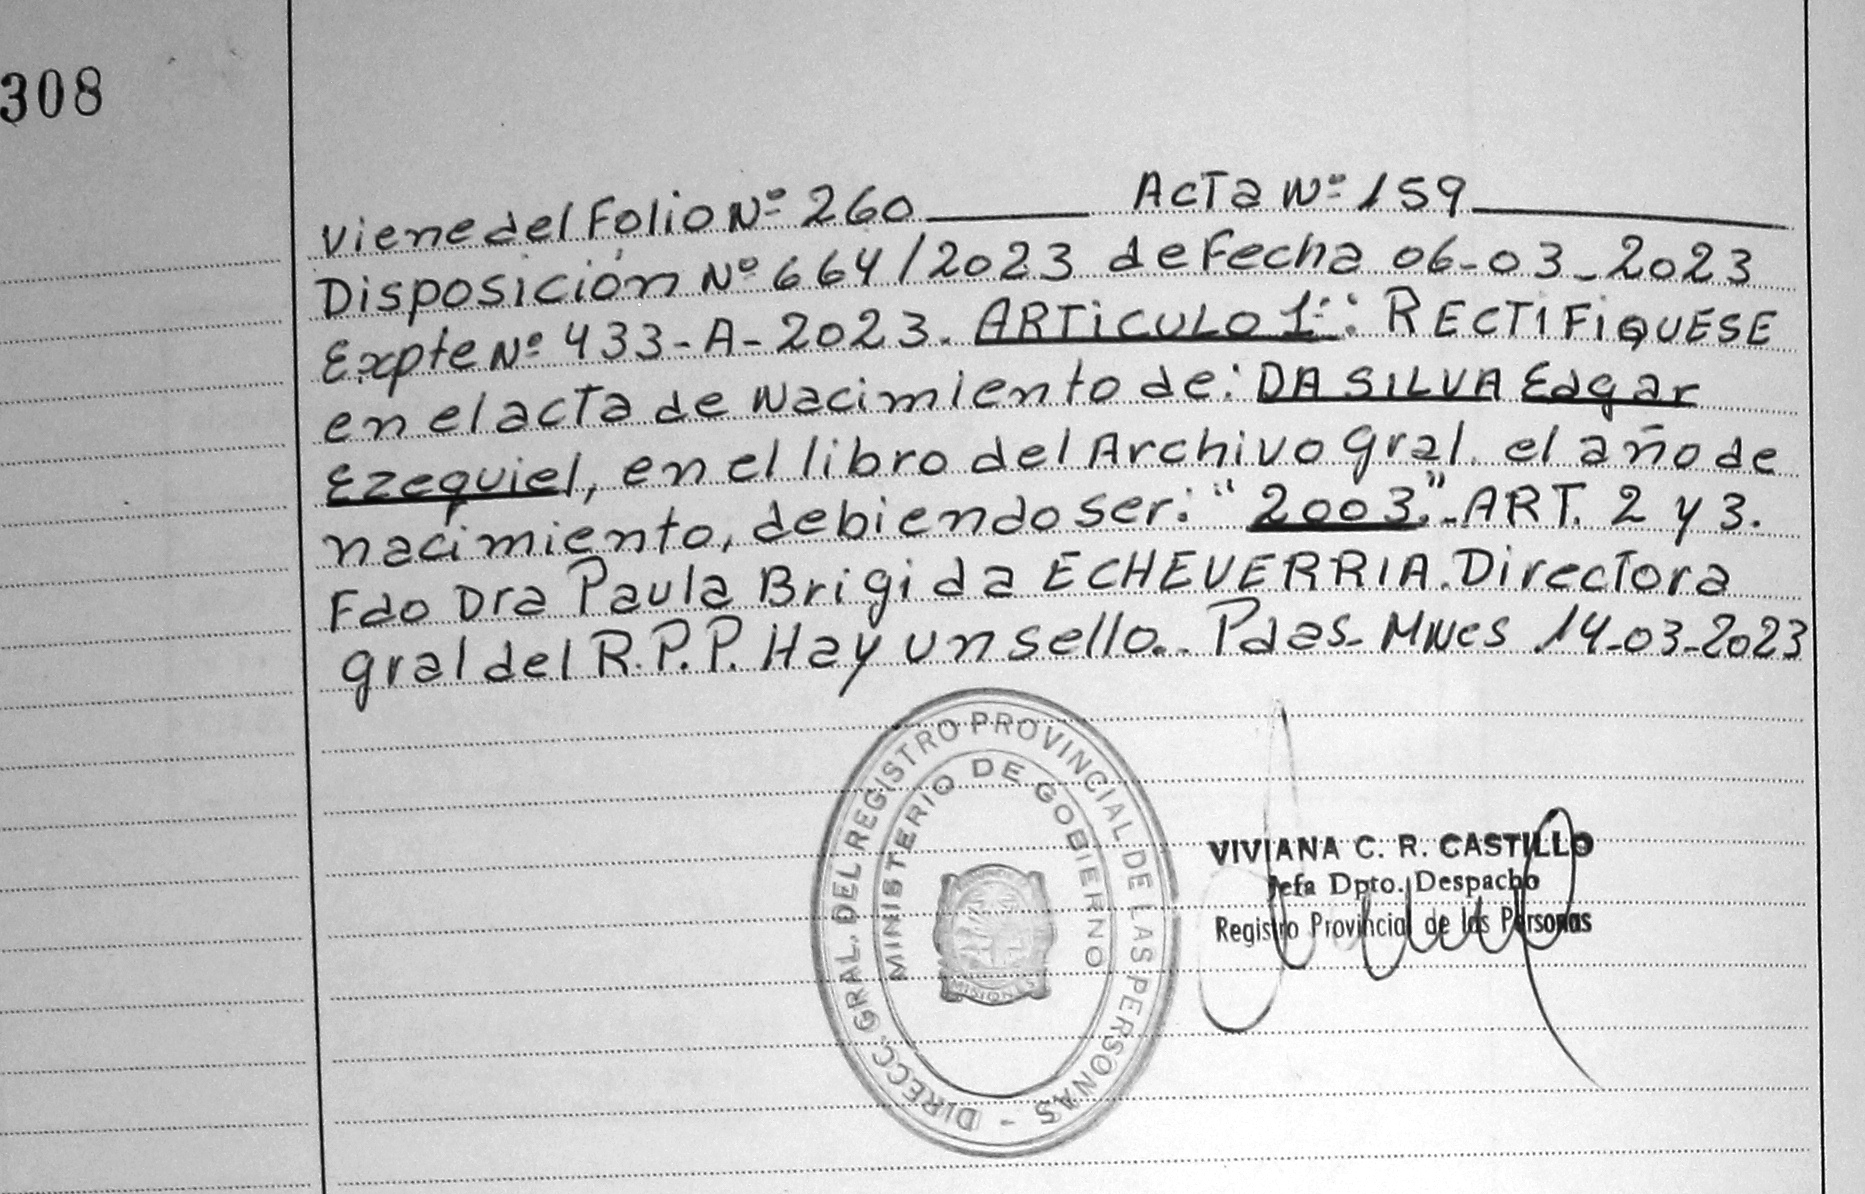 308
Viene del Folio Nº 260 ACTA Nº 159
Disposición Nº 664/2023 de Fecha 06-03-2023
Expte Nº 433-A-2023. ARTICULO 1º: RECTIFIQUESE
en el acta de Nacimiento de: DA SILVA Edgar
Ezequiel, en el libro del Archivo gral. el año de
nacimiento, debiendo ser: "2003."-ART. 2 y 3.
Fdo Dra Paula Brigida ECHEVERRIA. Directora
gral del R.P.P. Hay un sello.. Pdas- Mnes 14-03-2023
DIRECC. GRAL. DEL REGISTRO PROVINCIAL DE LAS PERSONAS -
MINISTERIO DE GOBIERNO
MISIONES
VIVIANA C. R. CASTILLO
Jefa Dpto. Despacho
Registro Provincial de las Personas